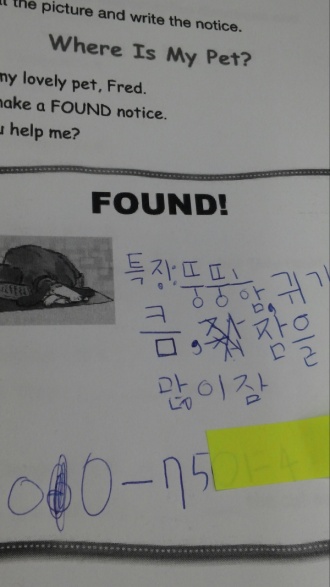 the picture and write the notice.
Where Is My Pet?
my lovely pet, Fred.
make a FOUND notice.
u help me?
FOUND!
특징: 뚱뚱함, 귀가
큼, 잠을
많이 잠
010-75